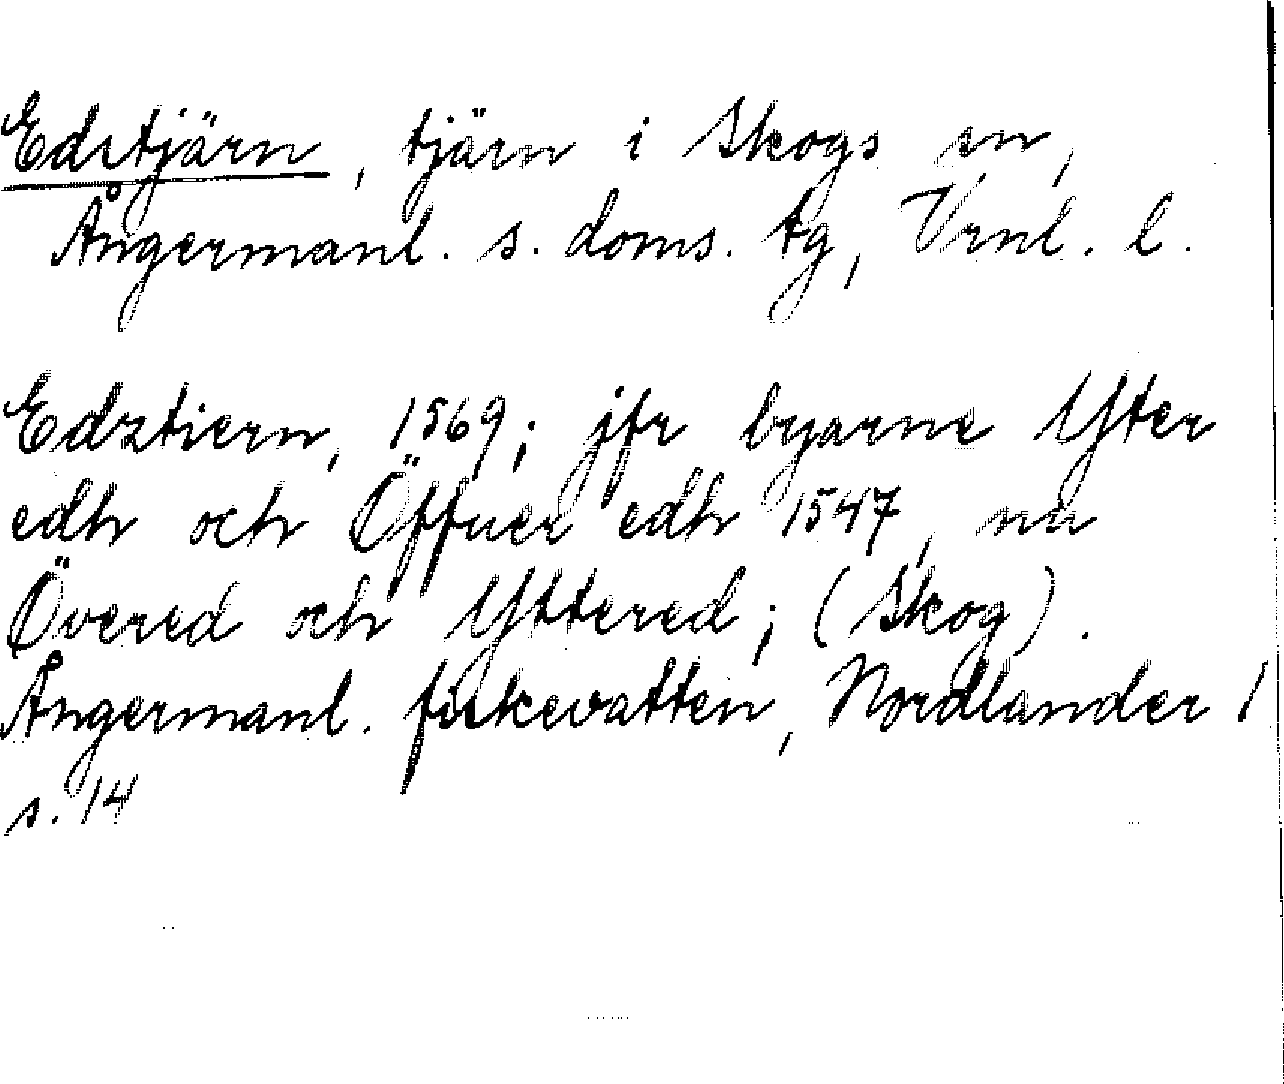 Edstjärn, tjärn i Skogs sn,
Ångermanl. s. doms. tg, Vrnl. l.
Edztiern, 1569; jfr byarne Yter
edh och Öffuer edh 1547, nu
Övered och Yttered; (Skog).
Ångermanl. fiskevatten, Nordlander 1
s. 14